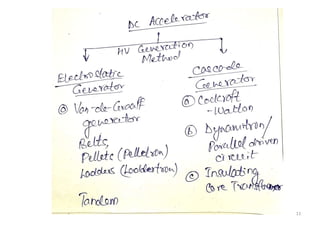 DC Accelerator
HV Generation
Method
Electrostatic
Generator
ⓐ Van-de-Graaff
generator
Belts,
Pellets (Pelletron)
Ladders (Laddertron)
Tandem
Cascade
Generator
ⓐ Cockcroft
-Walton
ⓑ Dynamitron/
Parallel driven
circuit
ⓒ Insulating
Core Transformer
11